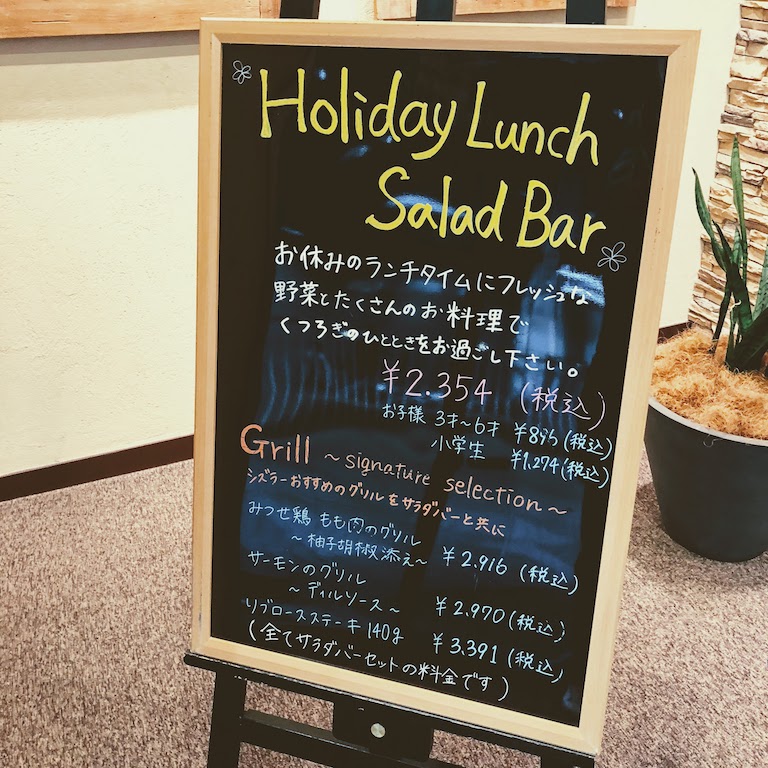 Holiday Lunch
Salad Bar
お休みのランチタイムにフレッシュな
野菜とたくさんのお料理で
くつろぎのひとときをお過ごし下さい。
¥2.354 (税込)
お子様 3才~6才 ¥895(税込)
小学生 ¥1.274(税込)
Grill ~signature selection~
シズラーおすすめのグリルをサラダバーと共に
みつせ鶏 もも肉のグリル
~柚子胡椒添え~ ¥2.916 (税込)
サーモンのグリル
~ディルソース~ ¥2.970(税込)
リブロースステーキ 140g ¥3.391 (税込)
(全てサラダバーセットの料金です)